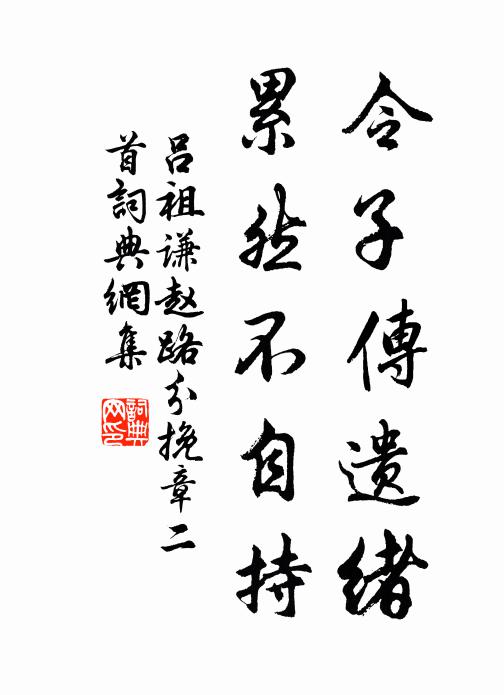 令子傳遺緒
累然不自持
吕祖谦赵路分挽章二
首詞典網集
詞典网印